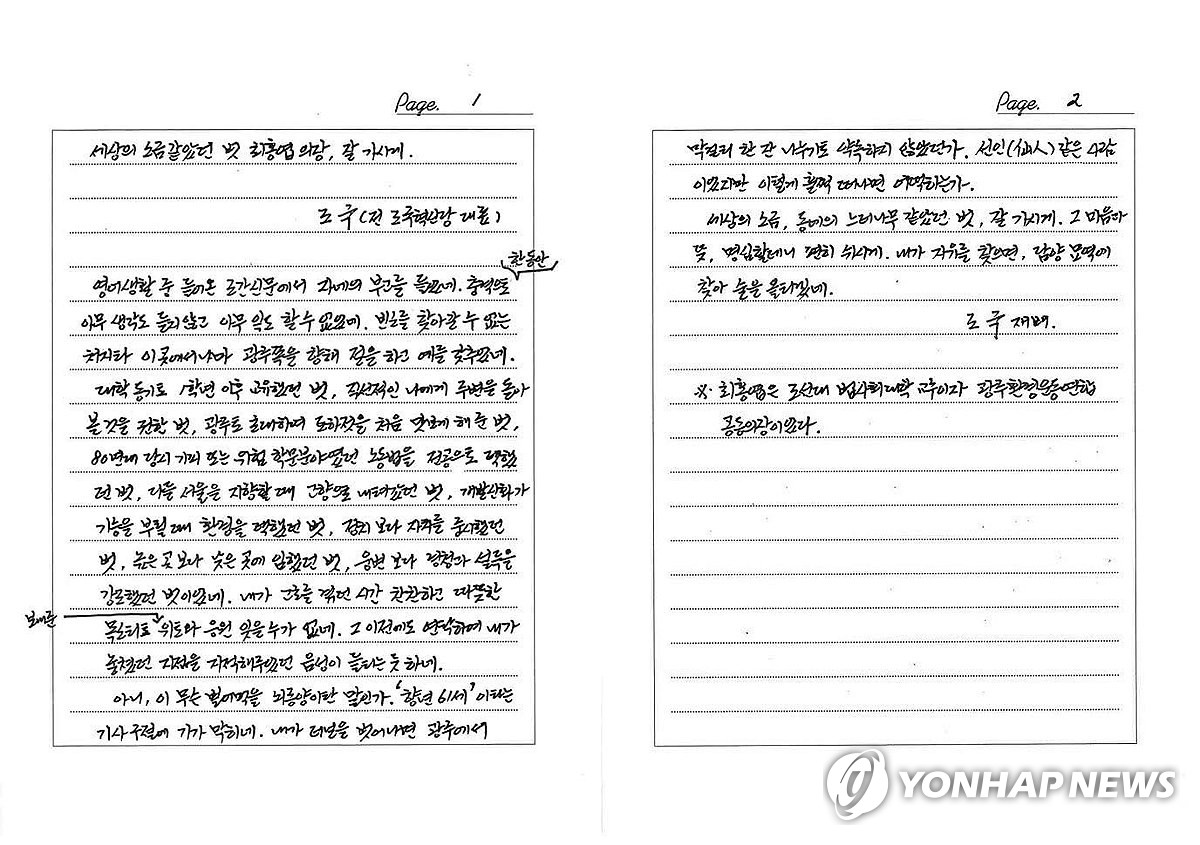 Page. 1
세상의 소금같았던 벗 최홍엽 의장, 잘 가시게.
조 국 (전 조국혁신당 대표)
한동안
영어생활 중 들어온 조간신문에서 자네의 부고를 들었네. 충격으로
아무 생각도 들지 않고 아무 일도 할 수 없었네. 빈소를 찾아갈 수 없는
처지라 이 곳에서나마 광주쪽을 향해 절을 하고 예를 갖추었네.
대학 동기로 1학년 이후 교유했던 벗, 직선적인 나에게 주변을 돌아
볼 것을 권한 벗, 광주로 초대하여 도하젓을 처음 맛보게 해 준 벗,
80년대 당시 기피 또는 위험 학문분야였던 노동법을 전공으로 택했
던 벗, 다들 서울을 지향할 때 고향으로 내려갔던 벗, 개발신화가
기승을 부릴 때 환경을 택했던 벗, 정치 보다 자치를 중시했던
벗, 높은 곳 보다 낮은 곳에 임했던 벗, 웅변 보다 경청과 설득을
강조했던 벗이었네. 내가 고초를 겪던 시간 찬찬하고 따뜻한
보내준
목소리로 위로와 응원 잊을 수가 없네. 그 이전에도 연락하여 내가
놓쳤던 지점을 지적해주었던 음성이 들리는 듯 하네.
아니, 이 무슨 벌어먹을 뇌종양이란 말인가. '향년 61세' 이라는
기사 구절에 기가 막히네. 내가 터널을 벗어나면 광주에서
Page. 2
막걸리 한 잔 나누기로 약속하지 않았던가. 선인(仙人) 같은 사람
이었지만 이렇게 훌쩍 떠나면 어떡하는가.
세상의 소금, 동네의 느티나무 같았던 벗, 잘 가시게. 그 마음과
뜻, 명심할테니 편히 쉬시게. 내가 자유를 찾으면, 담양 묘역에
찾아 술을 올리겠네.
조 국 재배.
※ 최홍엽은 조선대 법사회대학 교수이자 광주환경운동연합
공동의장이었다.
YONHAP NEWS